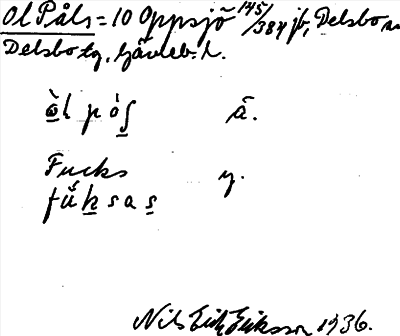 Ol Påls = 10 Oppsjö 145/384 jb, Delsbo sn
Delsbo tg, Gävleb. l.
ὼl pós̲ å.
Fucks y.
fǘk̲sas̲
Nils Erik Eriksson 1936.